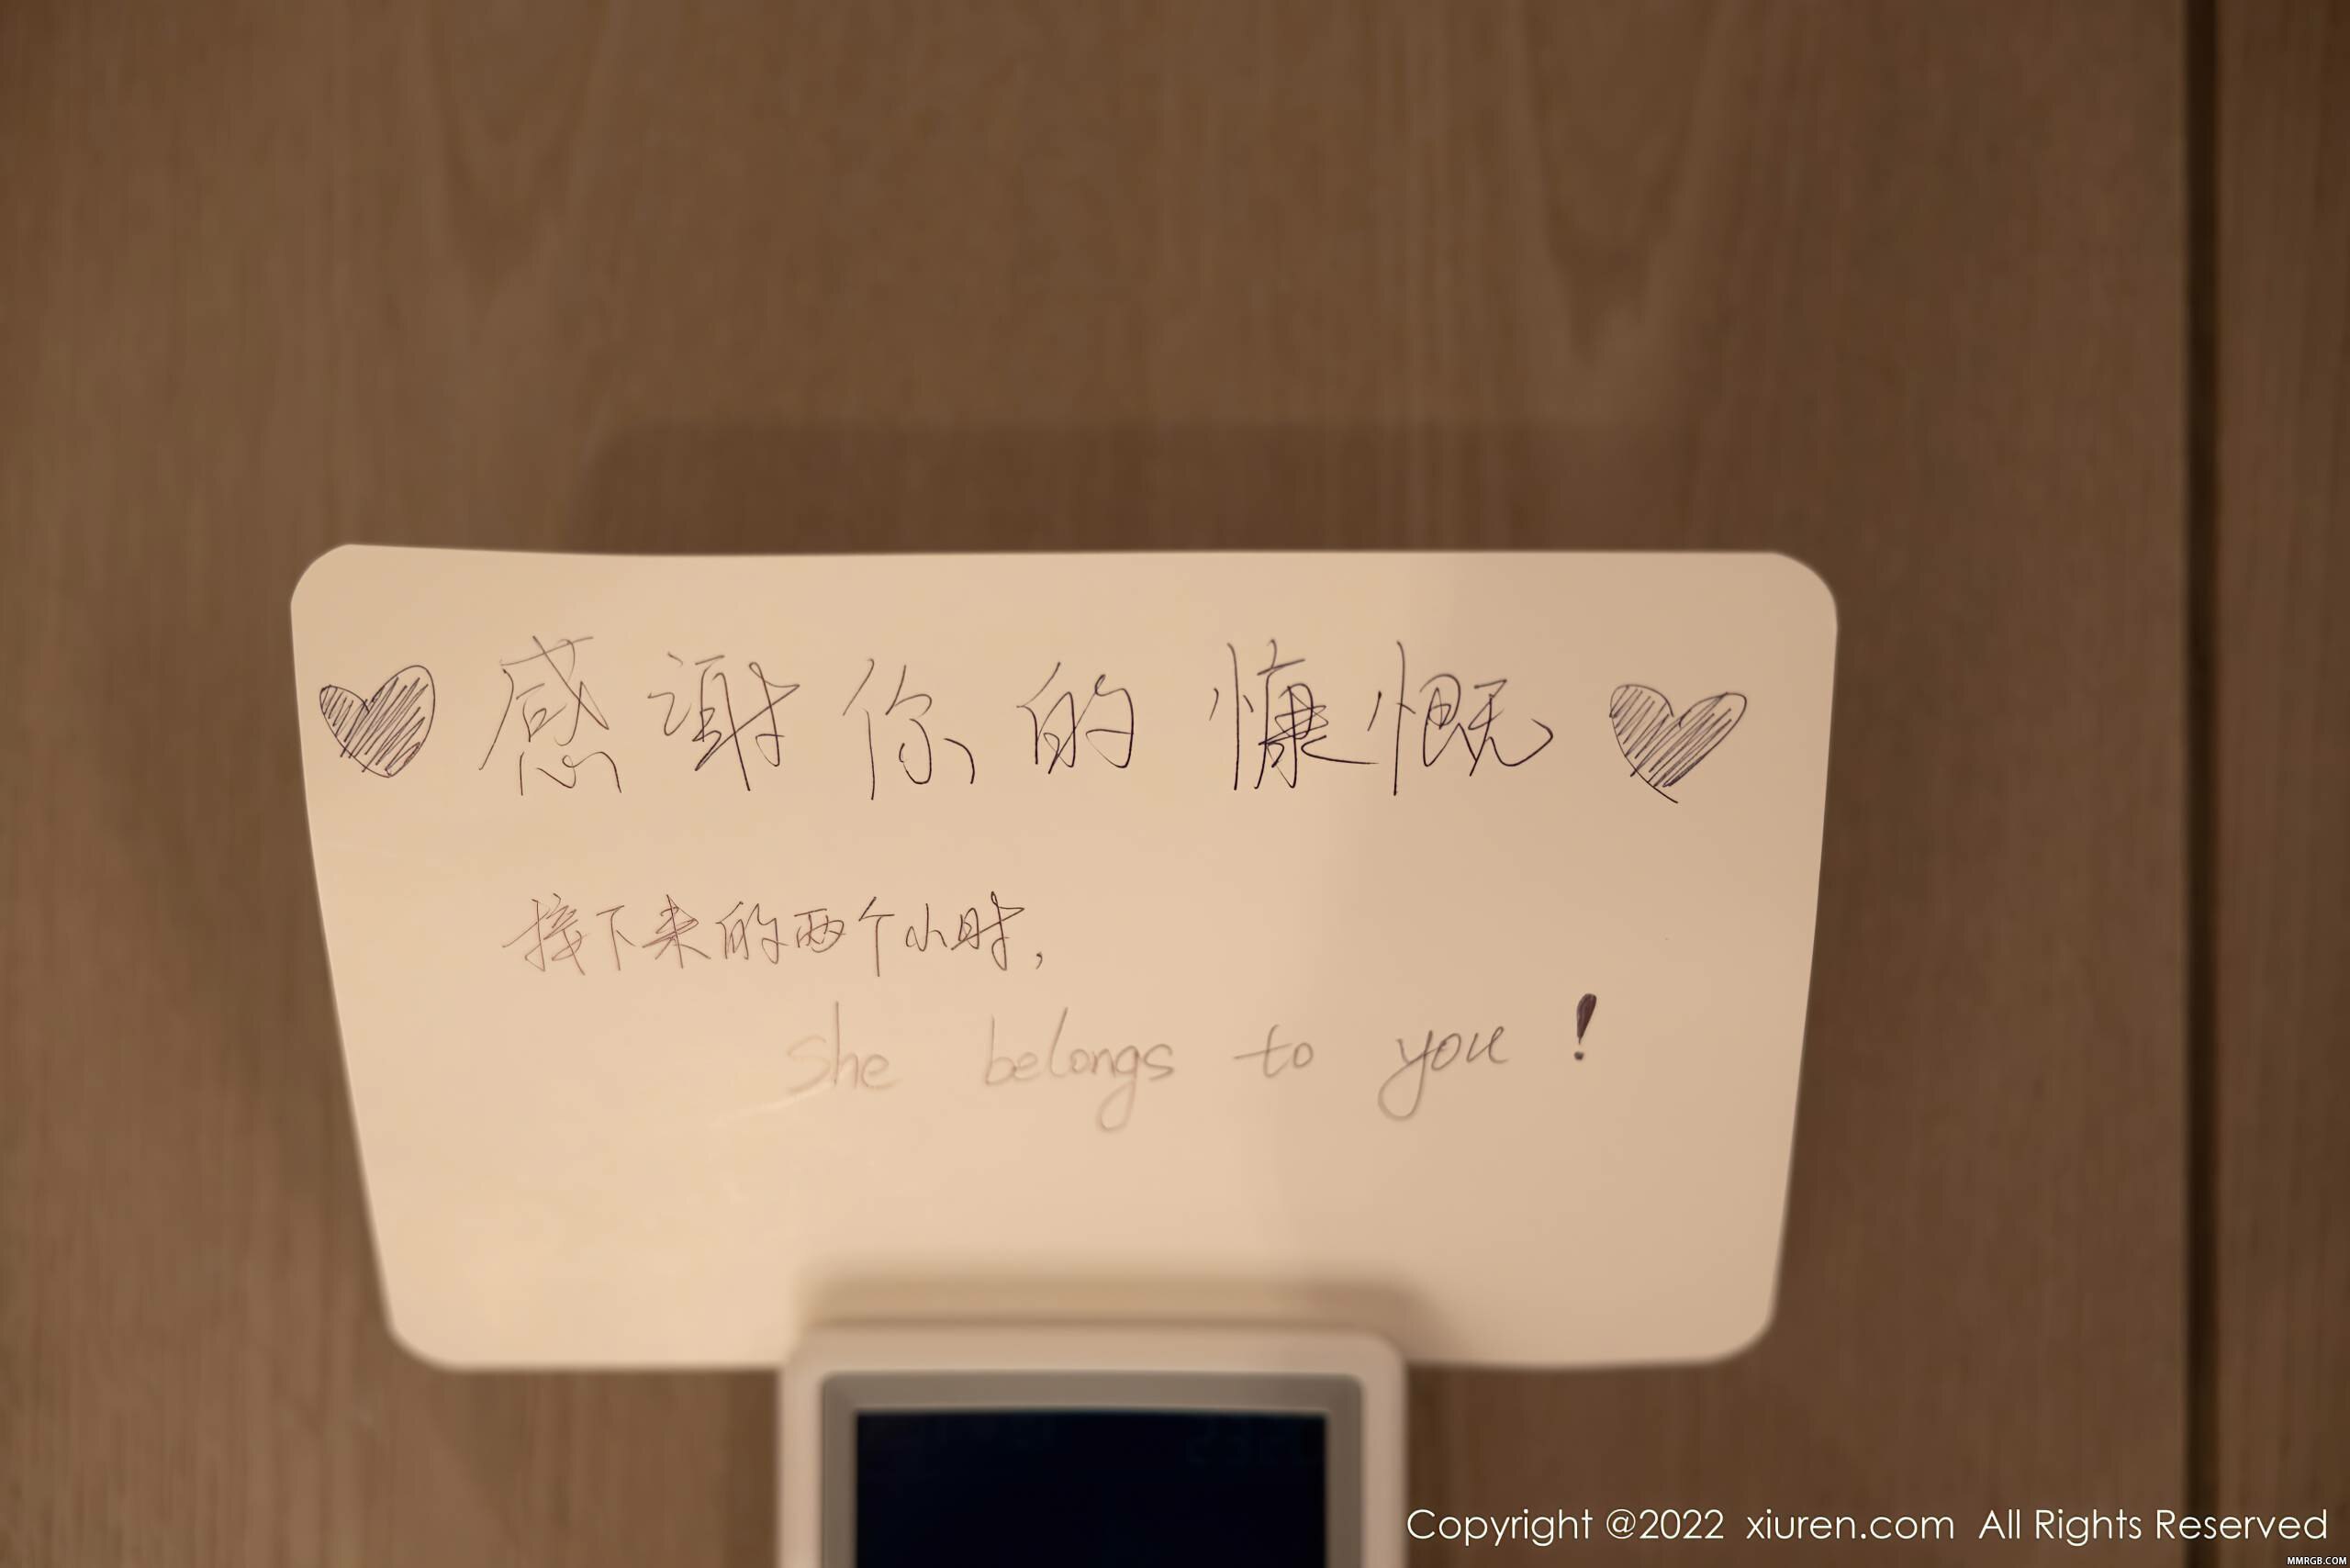 感谢你的慷慨
接下来的两个小时，
she belongs to you !
Copyright @2022 xiuren.com All Rights Reserved
MMRGB.COM